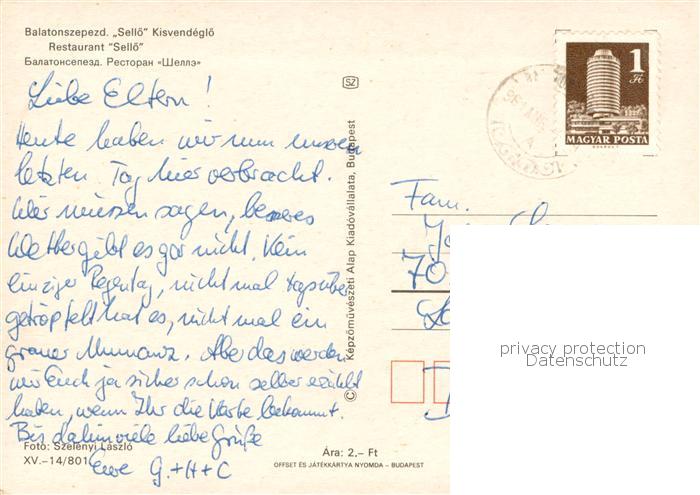 Balatonszepezd. „Sellő” Kisvendéglő
Restaurant “Sellő”
Балатонсепезд. Ресторан «Шеллэ»
Liebe Eltern!
Heute haben wir nun unseren
letzten Tag hier verbracht.
Wir müssen sagen, besseres
Wetter gibt es gar nicht. Kein
einziger Regentag, nicht mal tagsüber
getröpfelt hat es, nicht mal ein
grauer. Aber das werden
wir Euch ja sicher schon selber erzählt
haben, wenn Ihr die Karte bekommt.
Bis dahin viele liebe Grüße
Eure G.+H+C
Foto: Szelényi László
XV.–14/801
Ára: 2.– Ft
OFFSET ÉS JÁTÉKKÁRTYA NYOMDA – BUDAPEST
SZ
© Képzőművészeti Alap Kiadóvállalata, Budapest
1 Ft
MAGYAR POSTA
Fam.
70
privacy protection
Datenschutz